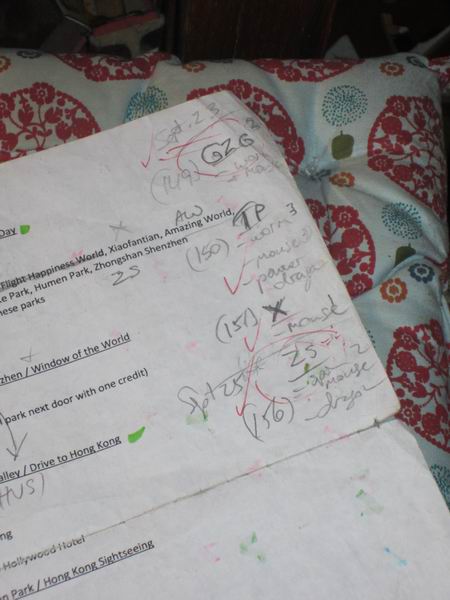 Sept. 23
GZG 2
(149)
Day
AW
Flight Happiness World, Xiaofantian, Amazing World,
TP
worm 3
le Park, Humen Park, Zhongshan Shenzhen
(150)
mouse
hese parks
ZS
power
dragon
(151) X
mouse 1
zhen / Window of the World
ZS
2
Sept 25
mouse
park next door with one credit)
(156)
dragon
alley / Drive to Hong Kong
HVS)
ng
Hollywood Hotel
n Park / Hong Kong Sightseeing